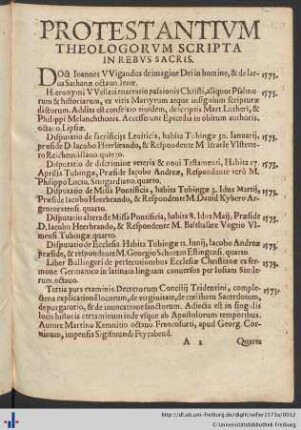 PROTESTANTIVM
THEOLOGORVM SCRIPTA
IN REBVS SACRIS.
DOct. Ioannes VVigandus de imagine Dei in homine, & de larua Sathanæ octauo. Ienæ. 1573.
Hieronymi VVelleri enarratio passionis Christi, aliquot Psalmorum & historiarum, ex vitis Martyrum atque insignium scripturæ
dictorum. Addita est conseruo eiusdem, de scriptis Mart. Lutheri, &
Philippi Melanchthonis. Accesserunt Epicedia in obitum authoris,
octauo. Lipsiæ. 1573.
Disputatio de sacrificijs Leuiticis, habita Tubingæ 30. Ianuarij,
præside D. Iacobo Heerbrando, & Respondente M.
quarto. 1573.
Disputatio de discrimine veteris & noui Testamenti, Habita 17.
Aprilis Tubingæ, Præside Iacobo Andreæ, Respondente verò M.
Philippo quarto. 1573.
Disputatio de Missa Pontificia, habita Tubingæ 3. Idus Martij,
Præside Iacobo Heerbrando, & Respondente M. Dauid Kybero Argentoratensi. quarto. 1573.
Disputatio altera de Missa Pontificia, habita 8. Idus Maij, Præside
D. Iacobo Heerbrando, & Respondente M. Balthasare Vogtio
Tubingæ quarto. 1573.
Disputatio de Ecclesia Habita Tubingæ 12. Iunij, Iacobo Andreæ
præside, & respondente M. Georgio Eßlingensi. quarto. 1573.
Liber Bullingeri de persecutionibus Ecclesiæ Christianæ ex sermone Germanico in latinum linguam conuersus per Iosiam Simlerum. octauo. 1573.
Tertia pars examinis Decretorum Concilij Tridentini, complectens explicationē locorum, de virginitate, de cœlibatu Sacerdotum,
de purgatorio, & de inuocatione sanctorum. Adiecta est in singulis
locis historia certaminum inde vsque ab Apostolorum temporibus.
Autore Martino Kemnitio octauo. Francofurti, apud Georg. Coruinum, impensis Sigismundi Feyrabend. 1573.
A 2 Quarta
http://dl.ub.uni-freiburg.de/diglit/willer1573a/0012
© Universitätsbibliothek Freiburg